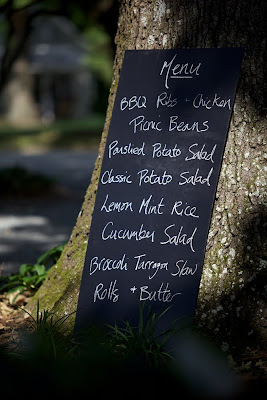 Menu
BBQ Ribs + Chicken
Picnic Beans
Parslied Potato Salad
Classic Potato Salad
Lemon Mint Rice
Cucumber Salad
Broccoli Tarragon Slaw
Rolls + Butter